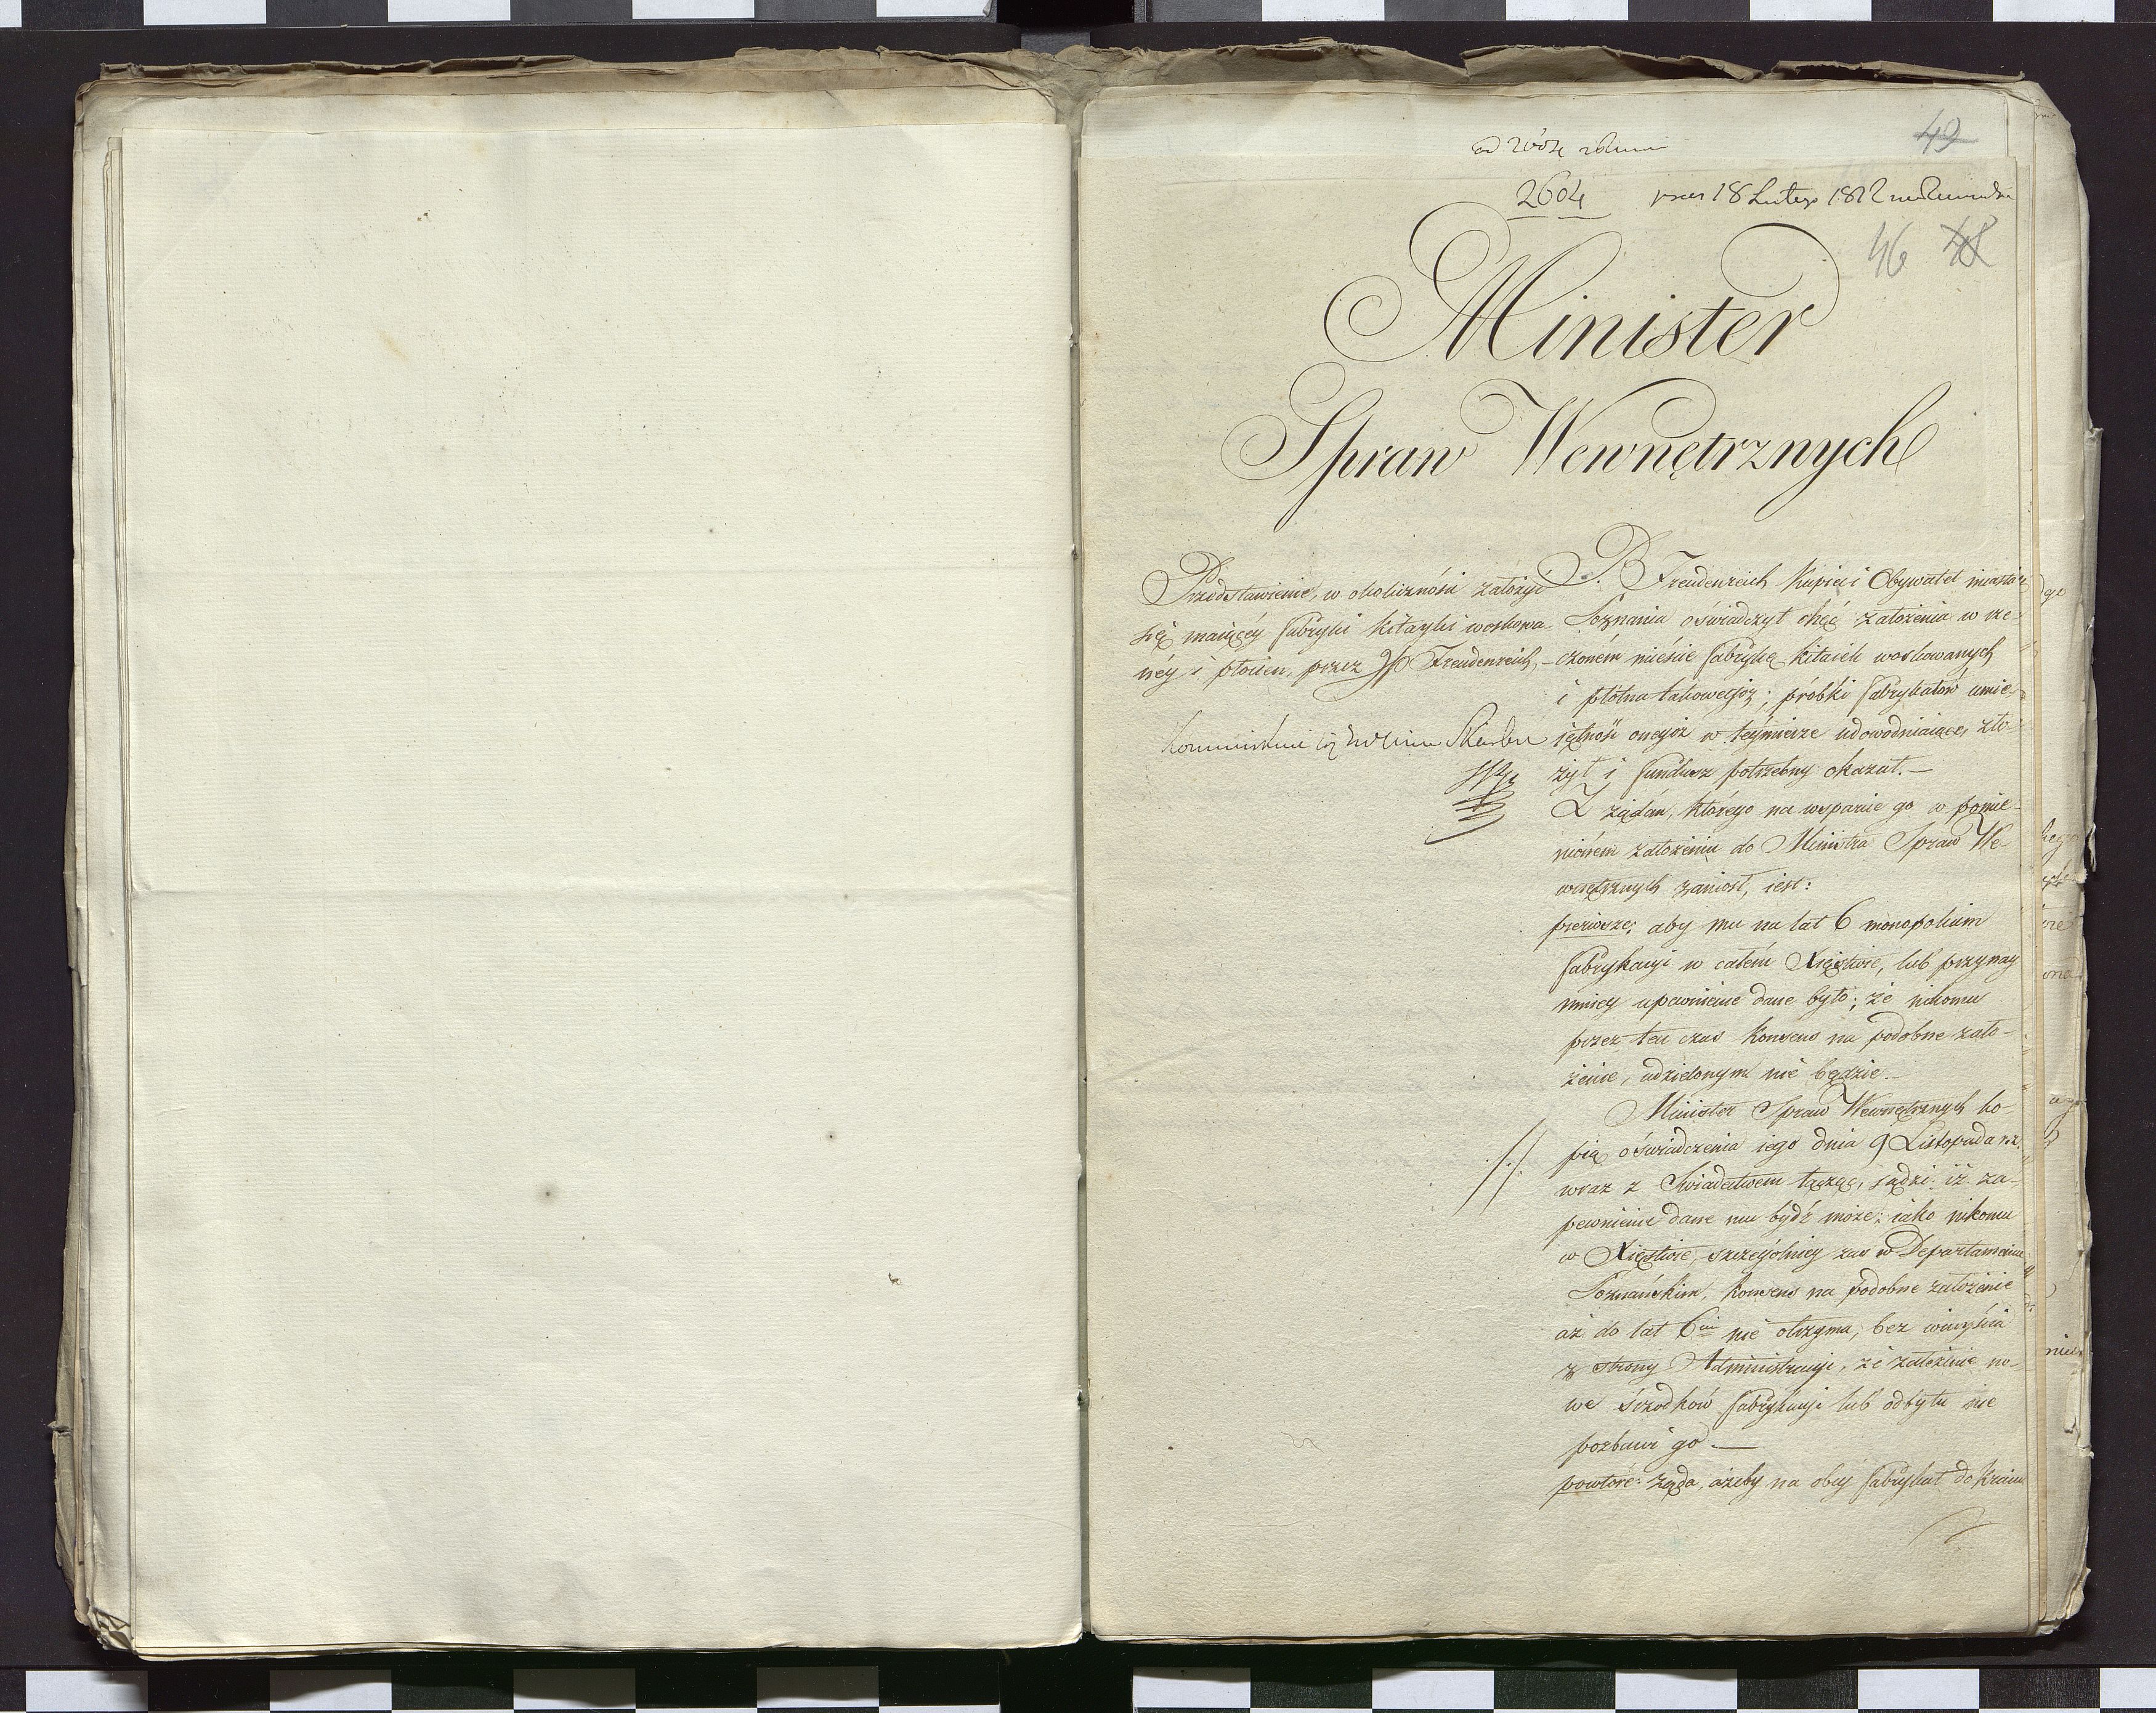 49
2604
18 Lutego 1812
46 48
Minister
Spraw Wewnętrznych
Przedstawienie, w okoliczności założyć
się maiącéy fabryki kitayki woskowa-
néy i płócien, przez JP Freudenreich,
P. B Freudenreich Kupiec i Obywatel miasta
Poznania oświadczył chęć założenia w rze-
czoném mieście fabrykę kitaiek woskowanych
i płótna takowegoż; próbki fabrykatów umie-
iętność onegoż w téymierze udowodniaiące, zło-
żył i fundusz potrzebny okazał.—
Z żądań, którego na wsparcie go w pomie-
nioném założeniu do Ministra Spraw We-
wnętrznych zaniósł, iest:
pierwsze: aby mu na lat 6 monopolium
fabrykacyi w całém Xięstwie, lub przynay
mniey upewnienie dane było; że nikomu
przez ten czas konsens na podobne zało-
żenie, udzielonym nie będzie.—
Minister Spraw Wewnętrznych ko-
pią oświadczenia iego dnia 9 Listopada r.z.
wraz z Świadectwem łącząc, sądzi: iż za-
pewnienie dane mu bydź może; iako nikomu
w Xięstwie, szczególniey zaś w Departamencie
Poznańskim, konsens na podobne założenie
aż do lat 6ciu nie otrzyma, bez
z strony Administracyi, że założenie no-
we śrzodków fabrykacyi lub odbytu nie
pozbawi go.—
powtóre: żąda, ażeby na obcy fabrykat do Kraiu